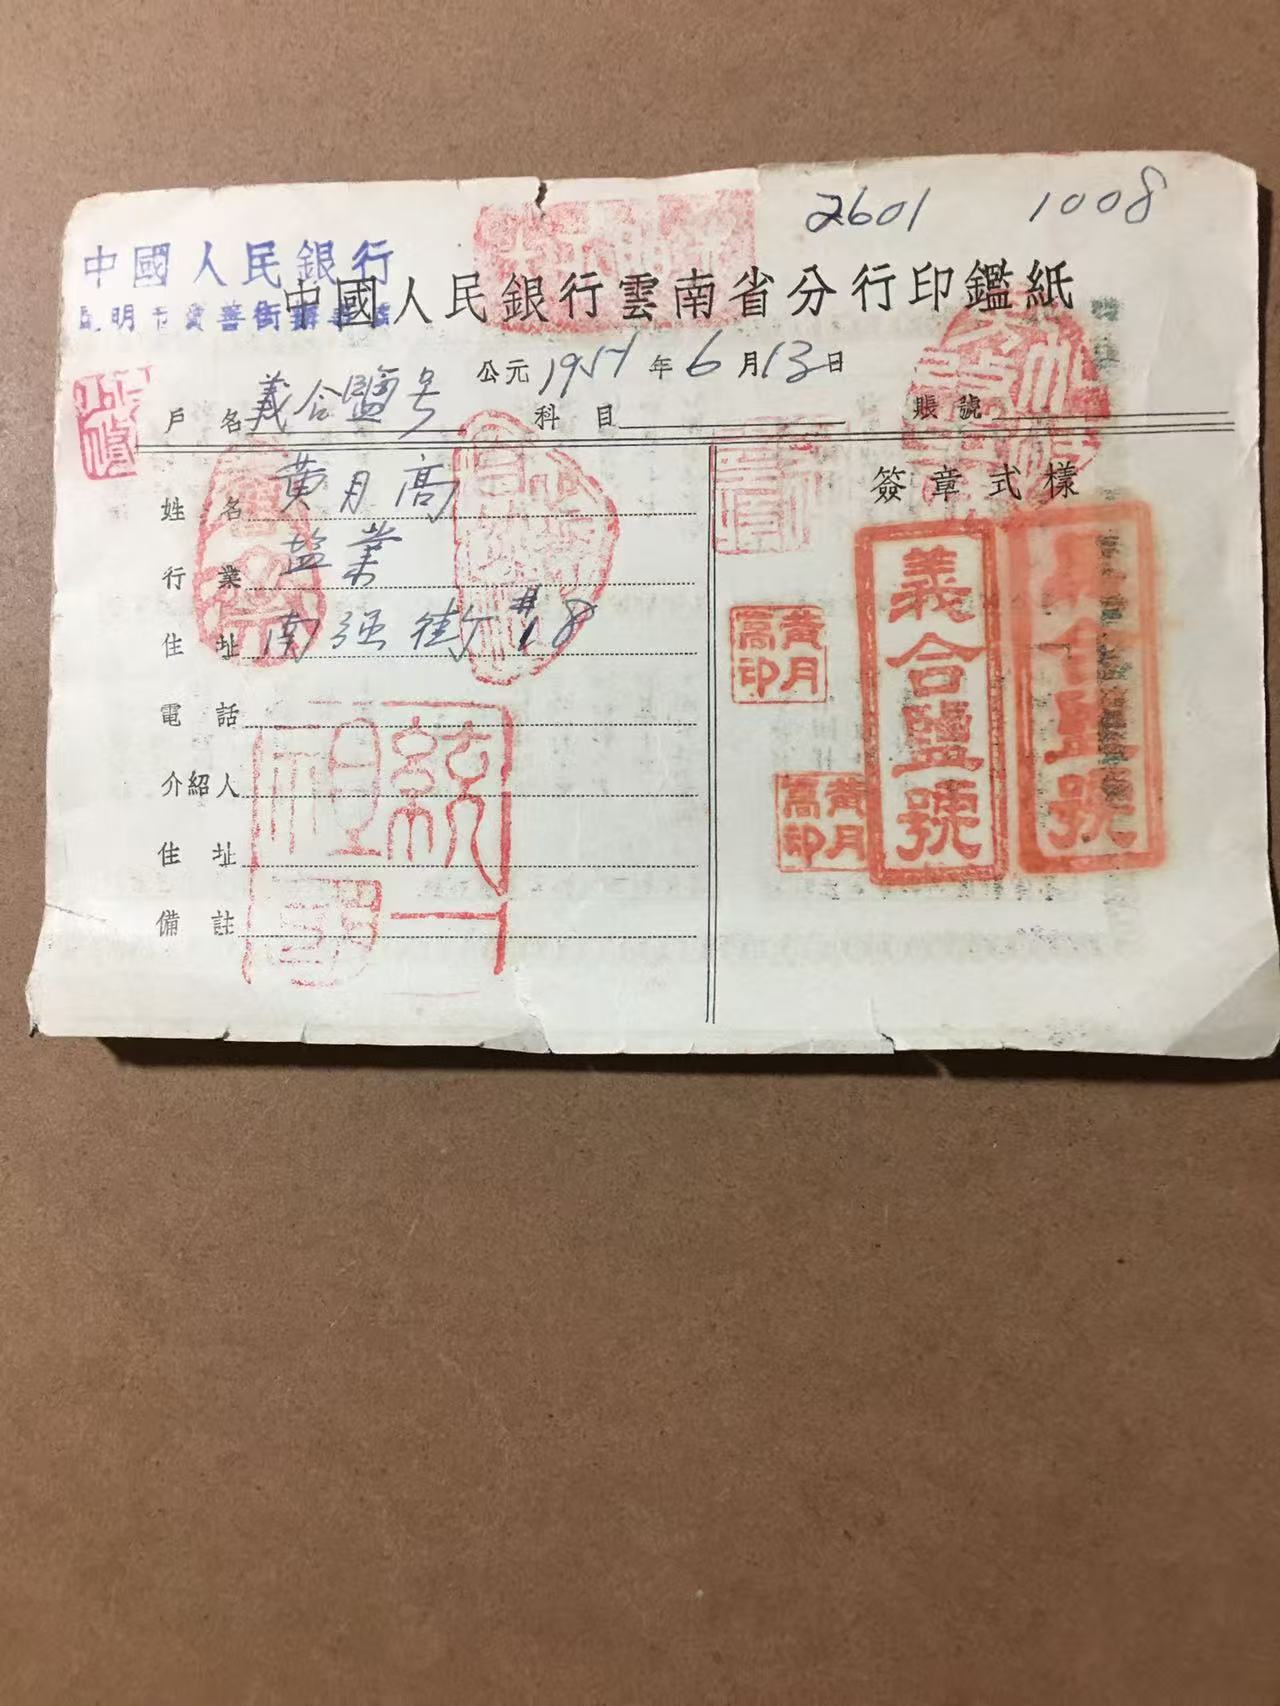 2601 1008
中國人民銀行
中國人民銀行雲南省分行印鑑紙
公元1951年6月13日
戶名 義合鹽号 科目 賬號
姓名 黃月高
行業 盐業
住址 南强街#18
電話
介紹人
住址
備註
簽章式樣
義合鹽號
合鹽號
黃月高印
黃月高印
統一祖國